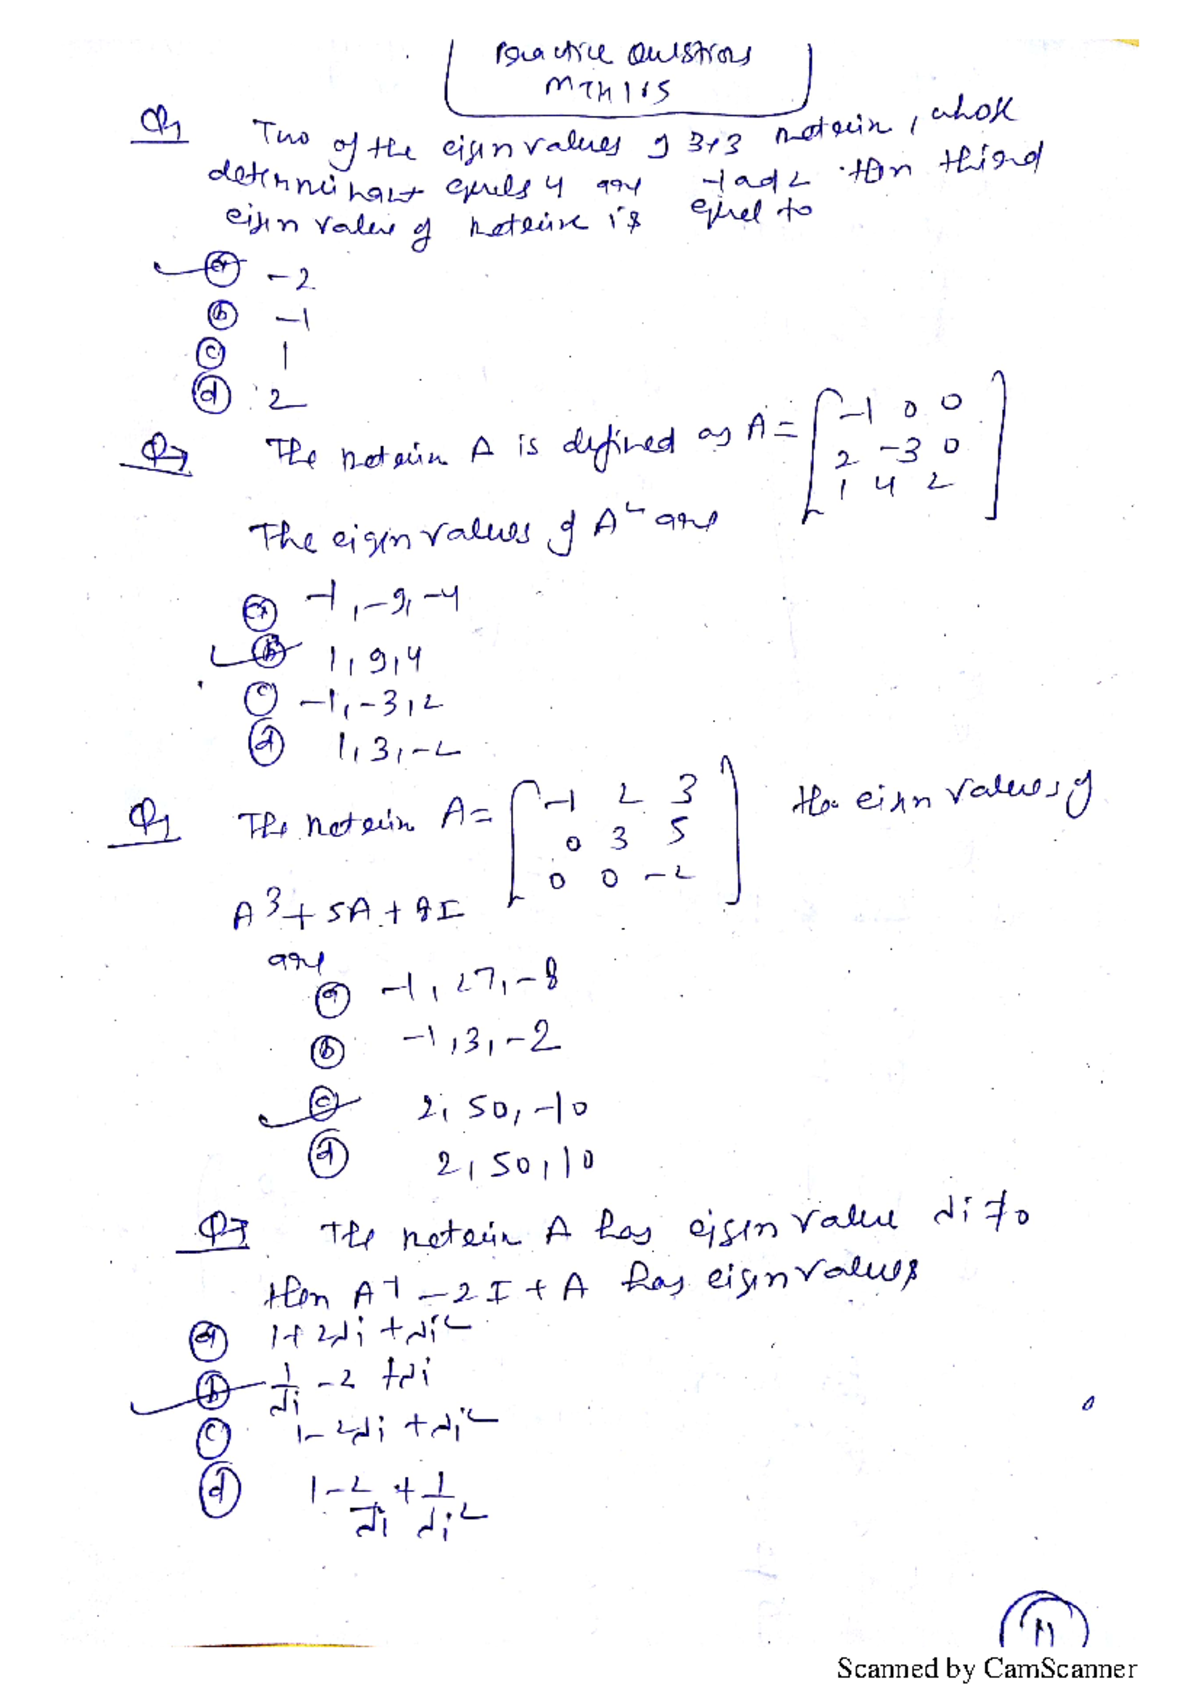 Practice Questions
MTH165
Q1 Two of the eigen values of 3×3 matrix, whose
determinant equals 4 are -1 and 2 then third
eigen value of matrix is equal to
(a) -2
(b) -1
(c) 1
(d) 2
Q The matrix A is defined as A = [ -1 0 0
2 -3 0
1 4 2 ]
The eigen values of A² are
(a) -1, -9, -4
(b) 1, 9, 4
(c) -1, -3, 2
(d) 1, 3, -2
Q The matrix A = [ -1 2 3 the eigen values of
0 3 5
0 0 -2 ]
A³ + 5A + 8I
are
(a) -1, 27, -8
(b) -1, 3, -2
(c) 2, 50, -10
(d) 2, 50, 10
Q The matrix A has eigen value λi ≠ 0
then A⁻¹ - 2I + A has eigen values
(a) 1 + 2λi + λi²
(b) 1/λi - 2 + λi
(c) 1 - 2λi + λi²
(d) 1 - 2/λi + 1/λi²
Scanned by CamScanner